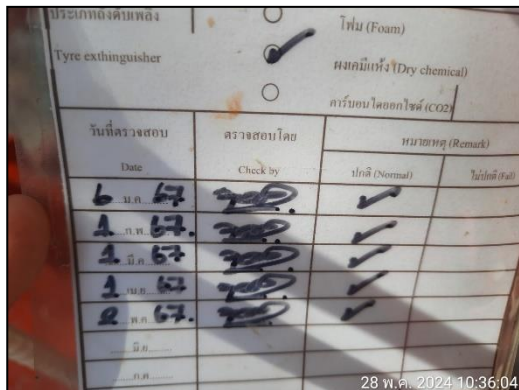 ประเภทถังดับเพลิง
โฟม (Foam)
Tyre exthinguisher
ผงเคมีแห้ง (Dry chemical)
คาร์บอนไดออกไซด์ (CO2)
วันที่ตรวจสอบ ตรวจสอบโดย หมายเหตุ (Remark)
Date Check by ปกติ (Normal) ไม่ปกติ (Fail)
6 ม.ค. 67
1 ก.พ. 67.
1 มี.ค. 67
1 เม.ย. 67
2 พ.ค. 67.
มิ.ย.
ก.ค.
28 พ.ค. 2024 10:36:04